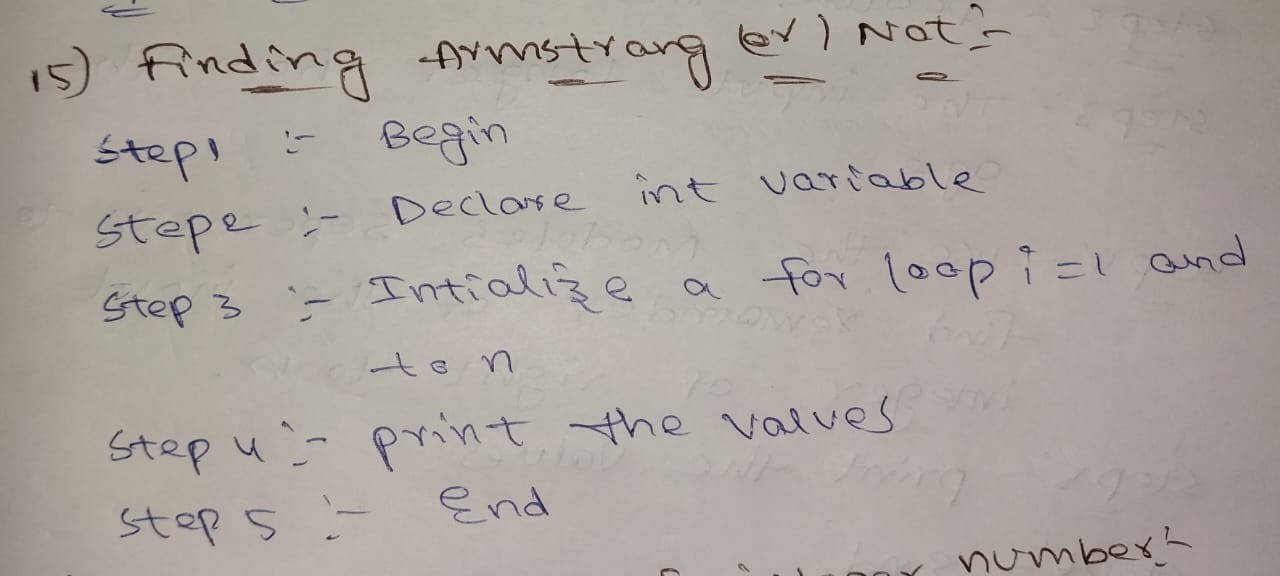 15) Finding Armstrang (or) Not :-
Step1 :- Begin
Step2 :- Declare int variable
Step 3 :- Intialize a for loop i=1 and
to n
Step 4 :- print the values
Step 5 :- End
number :-